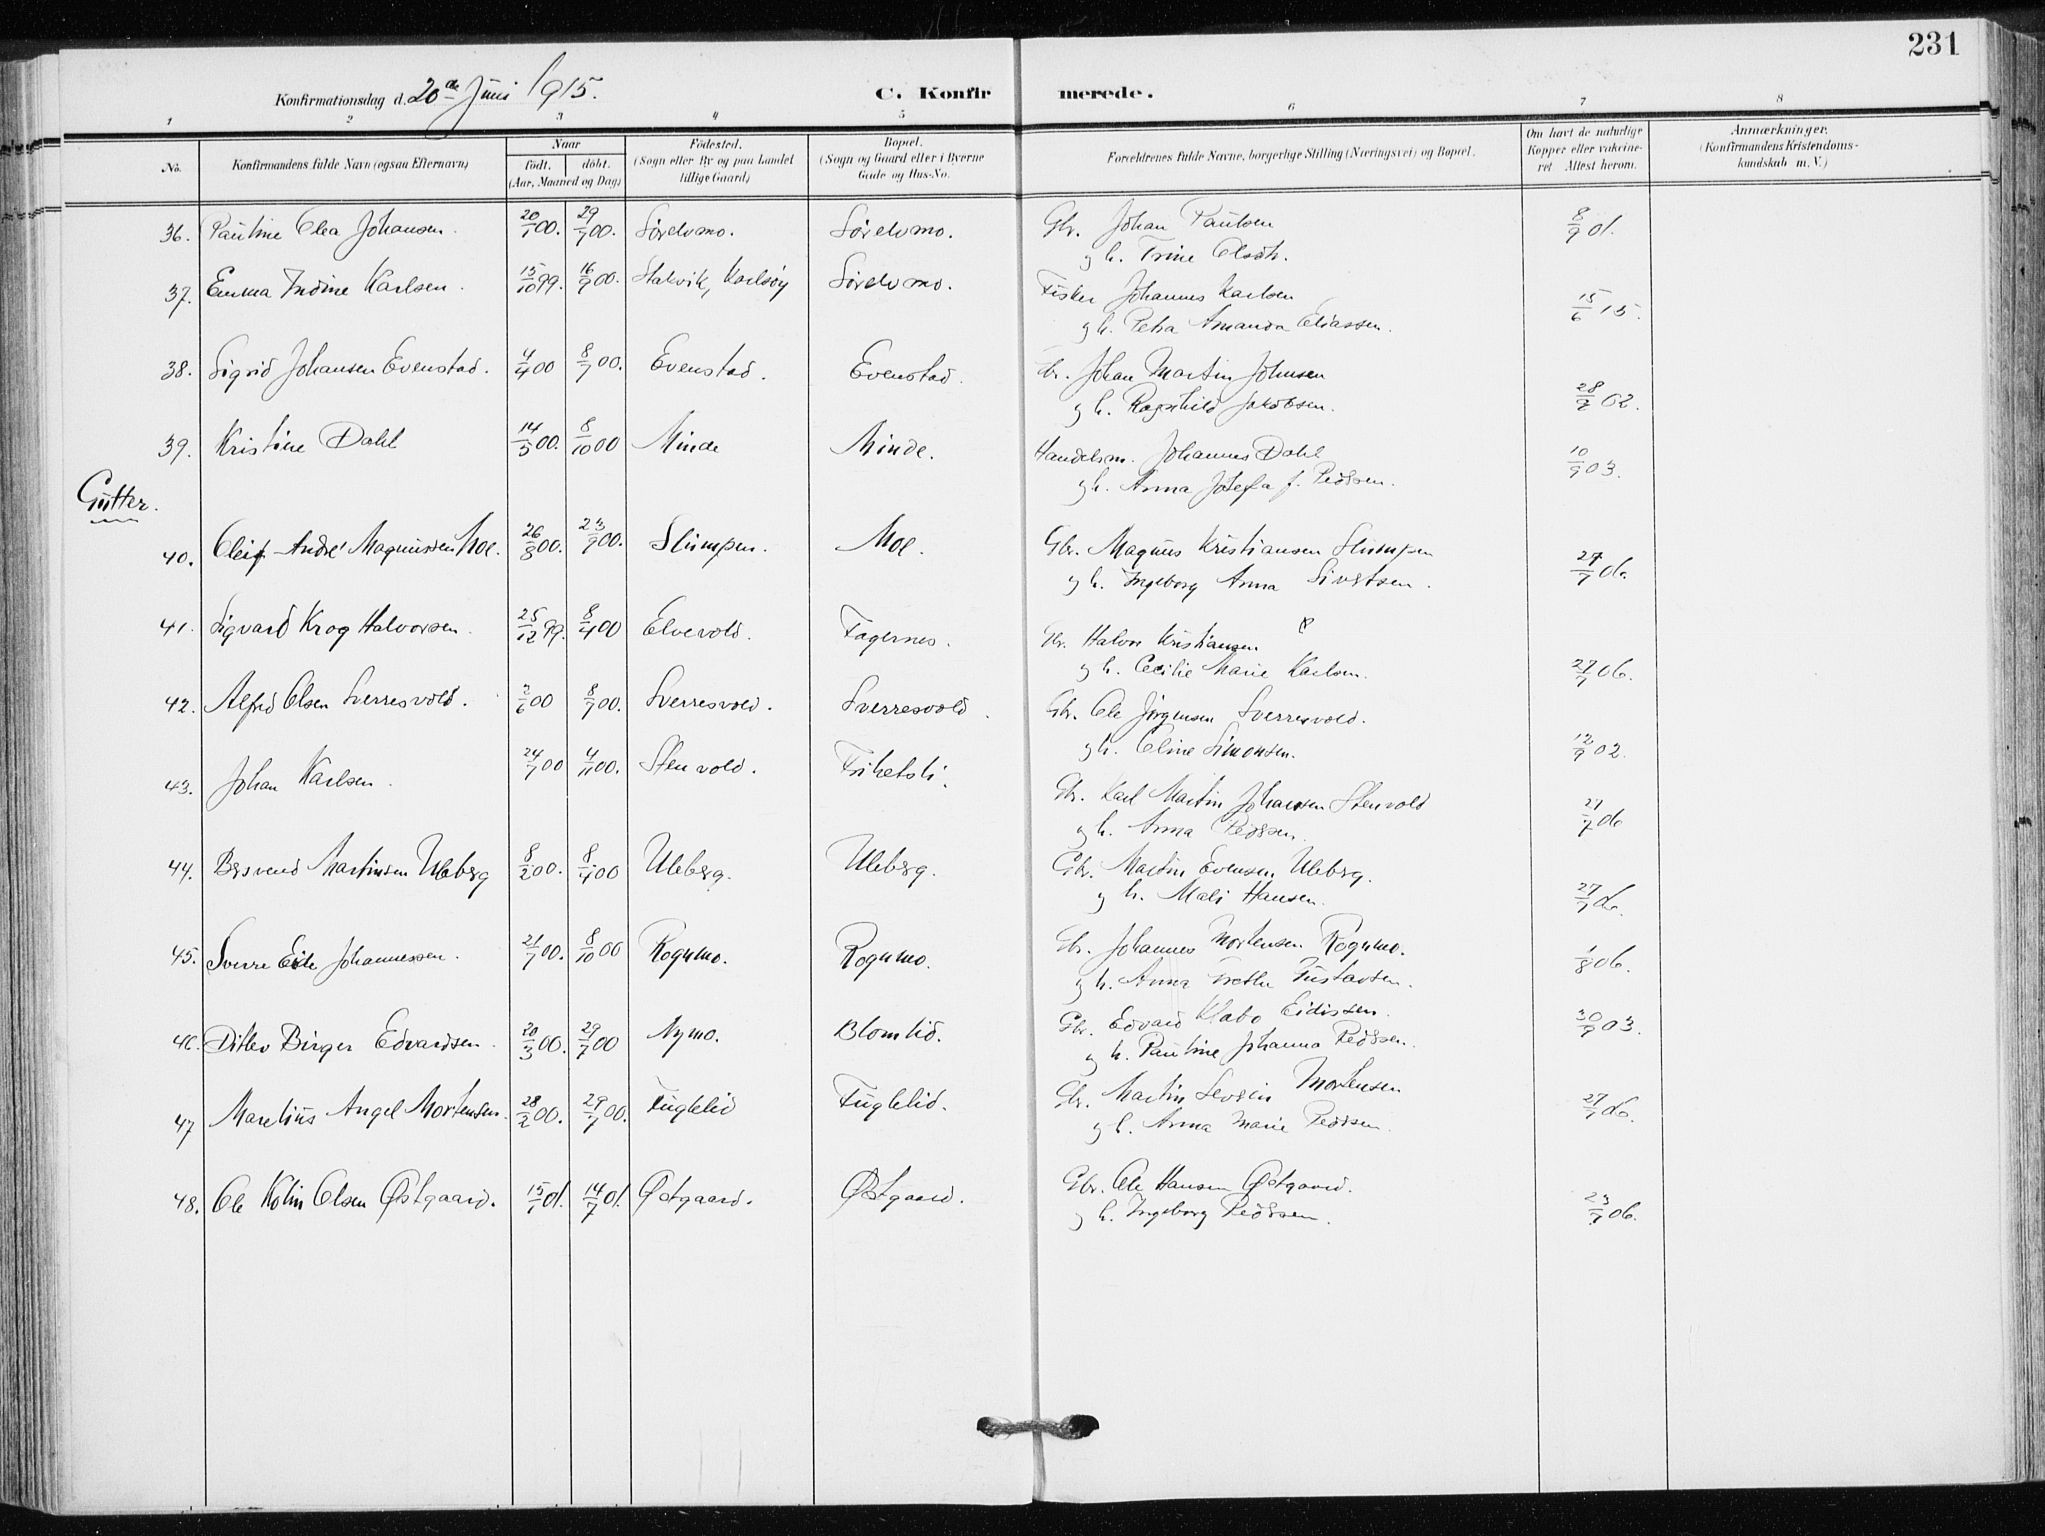 231
Konfirmationsdag d. 20de Juni 1915.
C. Konfirmerede.
1 2 3 4 5 6 7 8
No. Konfirmandens fulde Navn (ogsaa Efternavn) Naar født. døbt. (Aar, Maaned og Dag) Fødested. (Sogn eller By og paa Landet tillige Gaard) Bopæl. (Sogn og Gaard eller i Byerne Gade og Hus-No. Forældrenes fulde Navne, borgerlige Stilling (Næringsvei) og Bopæl. Om havt de naturlige Kopper eller vakcineret Attest herom. Anmærkninger. (Konfirmandens Kristendomskundskab m. V.)
36. Pauline Olea Johansen. 20/1 00. 29/7 00. Sørelvmo. Sørelvmo. Gbr. Johan Paulsen 8/9 01.
g h. Trine Olsdtr.
37. Emma Indine Karlsen. 15/10 99. 16/9 00. Stakvik, Karlsøy Sørelvmo. Fisker Johannes Karlsen
g h. Petra Amanda Eliassen. 15/6 15.
38. Sigrid Johansen Evenstad. 4/4 00 8/7 00. Evenstad. Evenstad. Gbr. Johan Martin Johnsen
g h. Ragnhild Jakobsen. 28/7 02.
39. Kristine Dahl 14/5 00. 8/10 00 Minde Minde. Handelsm. Johannes Dahl 10/9 03.
g h. Anna Josefa f. Pedersen.
Gutter.
40. Oleif André Magnussen Moe. 26/8 00. 23/9 00. Slimpen. Moe. Gbr. Magnus Kristiansen Slimpen
g h. Ingeborg Anna Sivertsen. 27/7 06.
41. Sigvard Krog Halvorsen. 25/12 99. 8/4 00 Elvevold. Fagernes. Gbr. Halvor Kristiansen
g h. Cecilie Marie Karlsen. 27/7 06.
42. Alfred Olsen Sverresvold. 2/6 00 8/7 00. Sverresvold. Sverresvold. Gbr. Ole Jørgensen Sverresvold.
g h. Oline Simonsen. 12/9 02.
43. Johan Karlsen. 24/7 00 4/11 00. Stenvold. Frihetsli. Gbr. Karl Martin Johansen Stenvold
g h. Anna Pedersen. 27/7 06
44. Bersvend Martinsen Uleberg 8/2 00. 8/4 00 Uleberg. Uleberg. Gbr. Martin Evensen Uleberg.
g h. Mali Hansen. 27/7 06.
45. Sverre Eile Johannessen. 21/7 00. 8/10 00 Rognmo. Rognmo. Gbr. Johannes Mortensen Rognmo. 1/8 06.
g h. Anna Grethe Gustavsen.
46. Ditlev Birger Edvardsen. 20/3 00. 29/7 00 Nymo. Blomlid. Gbr. Edvard Klabo Eidissen. 30/9 03.
g h. Pauline Johanna Pedersen.
47 Marelius Angel Mortensen. 28/2 00. 29/7 00. Fuglelid Fuglelid. Gbr. Martin Severin Mortensen
g h. Anna Marie Pedersen. 27/7 06.
48. Ole Kolin Olsen Østgaard. 15/1 01. 14/7 01. Østgaard. Østgaard. Gbr. Ole Hansen Østgaard.
g h. Ingeborg Pedersen. 23/7 06.